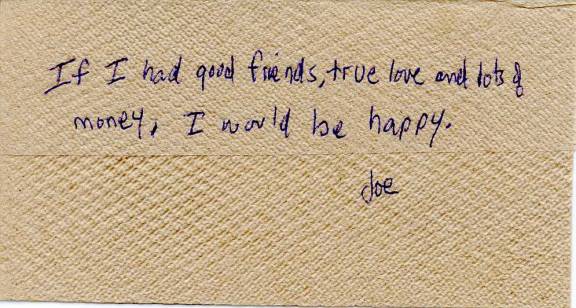 If I had good friends, true love and lots of
money, I would be happy.
Joe